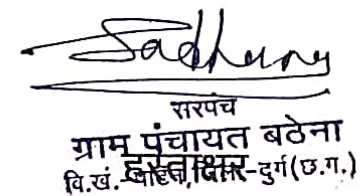 Sadhana
सरपंच
ग्राम पंचायत बठेना
हस्ताक्षर
वि.खं. जिला-दुर्ग (छ.ग.)